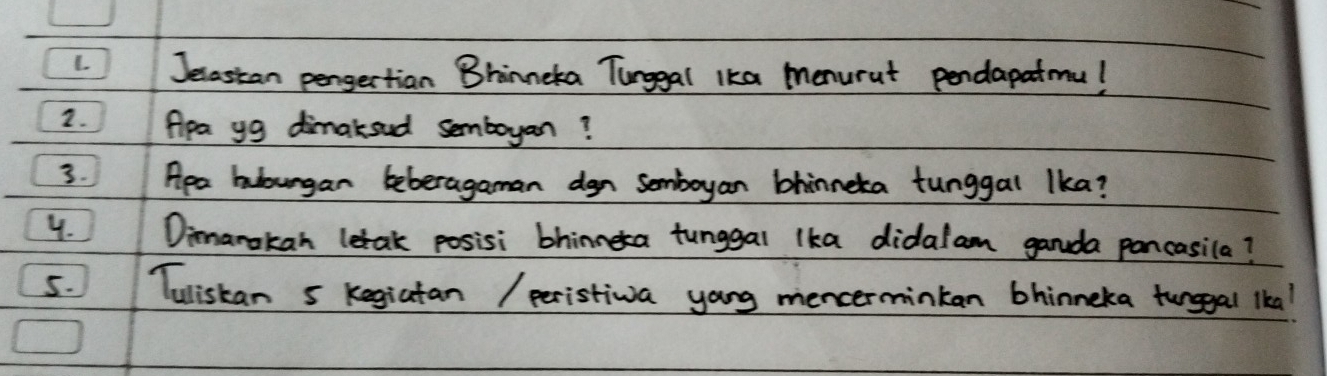 1. Jelaskan pengertian Bhinneka Tunggal Ika menurut pendapatmu!
2. Apa yg dimaksud semboyan?
3. Apa hubungan keberagaman dgn semboyan bhinneka tunggal Ika?
4. Dimanakah letak posisi bhinneka tunggal Ika didalam garuda pancasila?
5. Tuliskan 5 kegiatan / peristiwa yang mencerminkan bhinneka tunggal Ika!